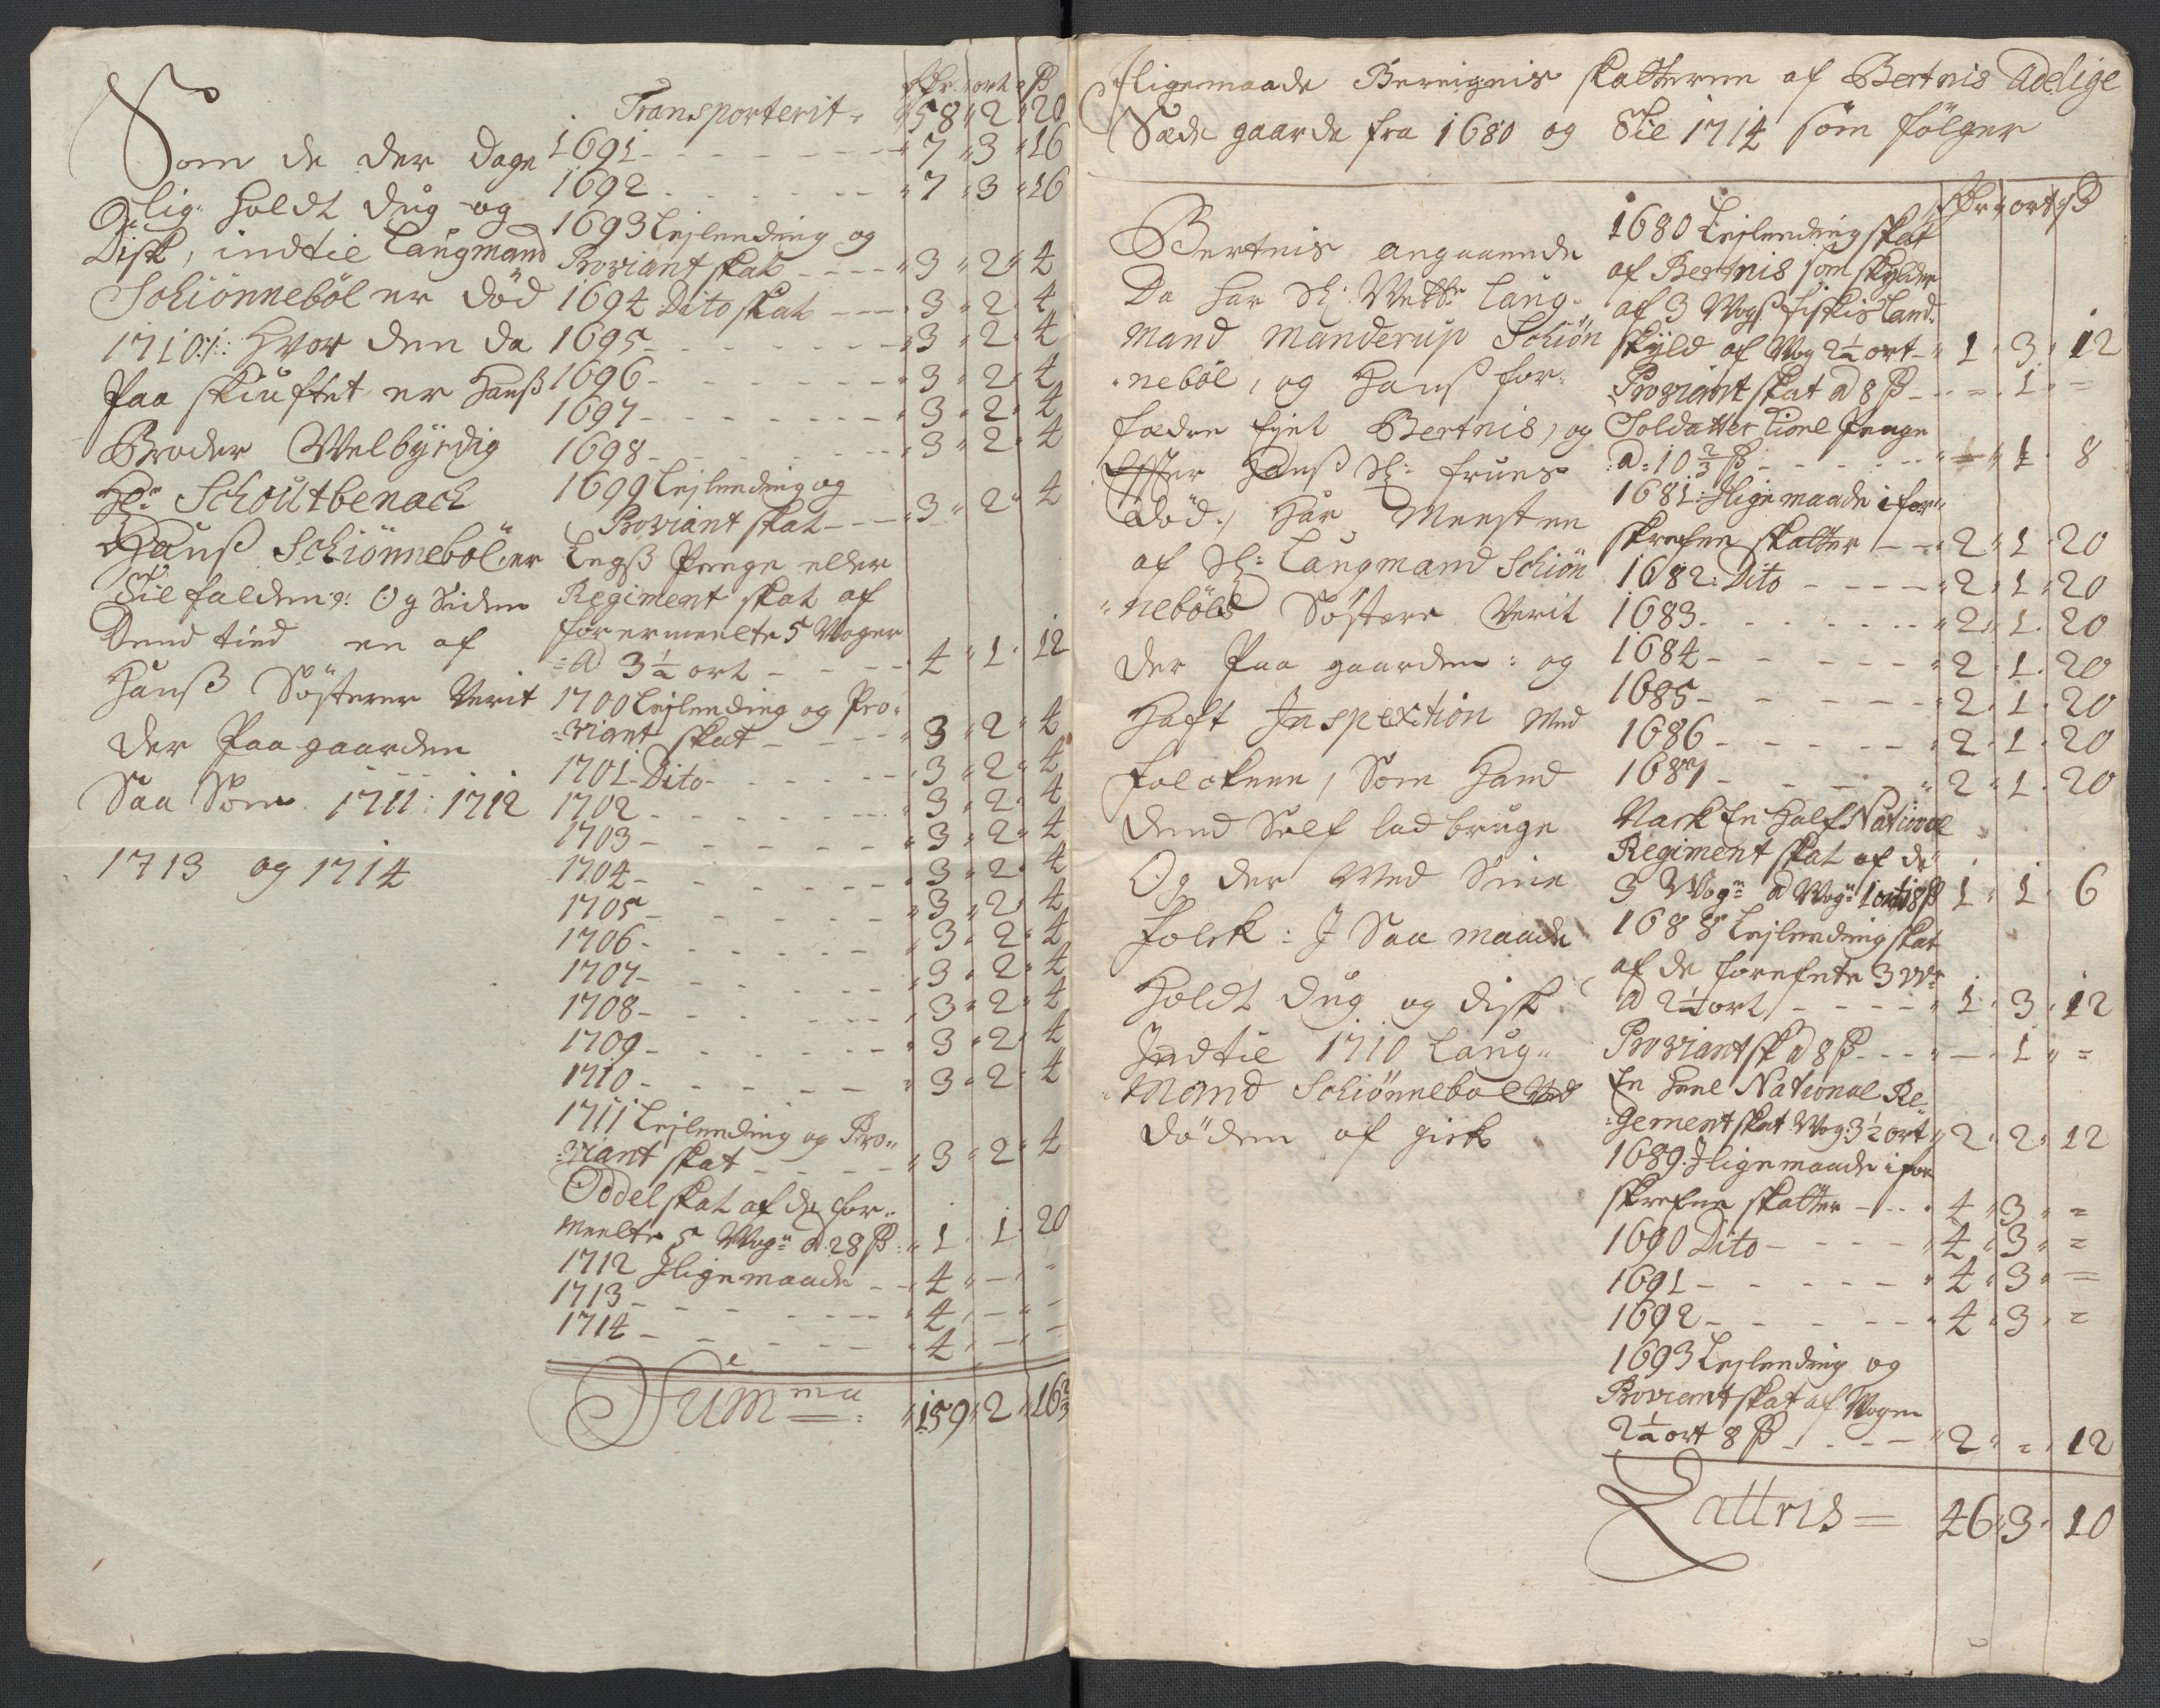 Som de der dage
lig holdt dug og
Disk, indtil Laugmand
Schiönneböl er död
1710:/: hvor den da
Paa skiuftet er Hanß
Broder Welbyrdig
Hr. Schoutbenach
Hanß Schiönneböl er
Tilfalden: Og Siden
Dend tied en af
Hanß Söstrer Verit
der Paa gaarden
Saa Som 1711: 1712
1713 og 1714
Rdr ort ß
Transporterit 58 2 20
1691 - 7 3 16
1692 - 7 3 16
1693 Lejlending og
Proviant skat - 3 2 4
1694 Dito skat - 3 2 4
1695 - 3 2 4
1696 - 3 2 4
1697 - 3 2 4
1698 - 3 2 4
1699 Lejlending og
Proviant skat - 3 2 4
Legß Penge eller
Regiment skat af
forermeelte 5 Woger
a 3½ ort - 4 1 12
1700 Lejlending og Pro-
viant skat - 3 2 4
1701 Dito - 3 2 4
1702 - 3 2 4
1703 - 3 2 4
1704 - 3 2 4
1705 - 3 2 4
1706 - 3 2 4
1707 - 3 2 4
1708 - 3 2 4
1709 - 3 2 4
1710 - 3 2 4
1711 Lejlending og Pro-
viant skat - 3 2 4
Oddel skat af de for-
meelte 5 Wog: a 28 ß 1 1 20
1712 Iligemaade - 4 - -
1713 - 4 - -
1714 - 4 - -
Summa 159 2 16⅔
Iligemaade Bereignis skatterne af Bertnis Adelige
Sæde gaarde fra 1680 og Til 1714 som fölger
Bertnis angaaende
Da har Sl: Welb: Laug-
mand Manderup Schiön
neböl, og Hanß for-
fædre Eyet Bertnis, og
Efter Hanß Sl: Frues
Död, Har Meesten
af Sl: Laugmand Schiön
neböls Söstre Verit
der Paa gaarden: og
Haft Inspextion Med
folckene, Som Hand
dend Self lod bruge
Og der Med Sine
folck: I Saa maade
Holdt Dug og disk
Indtil 1710 Laug-
Mand Schiönnebol Ved
döden af gick
Rdr ort ß
1680 Lejlending skat
af Bertnis som skylder
af 3 Wog: fiskis Land-
skyld af Wog 2½ ort - 1 3 12
Proviant skat a 8 ß - - 1 -
Soldatter Tione Penge
a 10⅔ ß - 1 8
1681: Iligemaade i for-
skrefne skatter - 2 1 20
1682: Dito - 2 1 20
1683 - 2 1 20
1684 - 2 1 20
1685 - 2 1 20
1686 - 2 1 20
1687 - 2 1 20
Nock En Half National
Regiment skat af de
3 Wog: a Wog: 1 ort 18 ß 1 1 6
1688 Lejlending skat
af de 3 W:
a 2½ ort - 1 3 12
Proviant sk a 8 ß - - 1 -
En Heel National Re-
gement skat Wog: 3½ ort 2 2 12
1689: Iligemaade i for
skrefne skatter - 4 3 -
1690 Dito - 4 3 -
1691 - 4 3 -
1692 - 4 3 -
1693 Lejlending og
Proviant skat af Wogen
2½ ort 8 ß - 2 - 12
Lattris 46 3 10